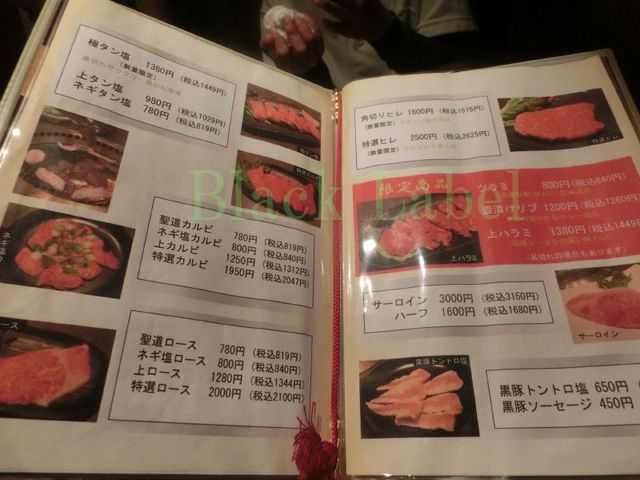 極タン塩 1380円 (税込1449円)
(数量限定)
上タン塩 980円 (税込1029円)
ネギタン塩 780円 (税込819円)
極タン塩
聖道カルビ 780円 (税込819円)
ネギ塩カルビ 800円 (税込840円)
上カルビ 1250円 (税込1312円)
特選カルビ 1950円 (税込2047円)
聖道ロース 780円 (税込819円)
ネギ塩ロース 800円 (税込840円)
上ロース 1280円 (税込1344円)
特選ロース 2000円 (税込2100円)
角切りヒレ 1500円 (税込1575円)
(数量限定)
特選ヒレ 2500円 (税込2625円)
(数量限定)
特選ヒレ
限定商品
ツラミ 800円 (税込840円)
壺漬けリブ 1200円 (税込1260円)
上ハラミ 1380円 (税込1449円)
(品切れの場合もあります)
上ハラミ
サーロイン 3000円 (税込3150円)
ハーフ 1600円 (税込1680円)
サーロイン
黒豚トントロ塩
黒豚トントロ塩 650円
黒豚ソーセージ 450円
Black Label